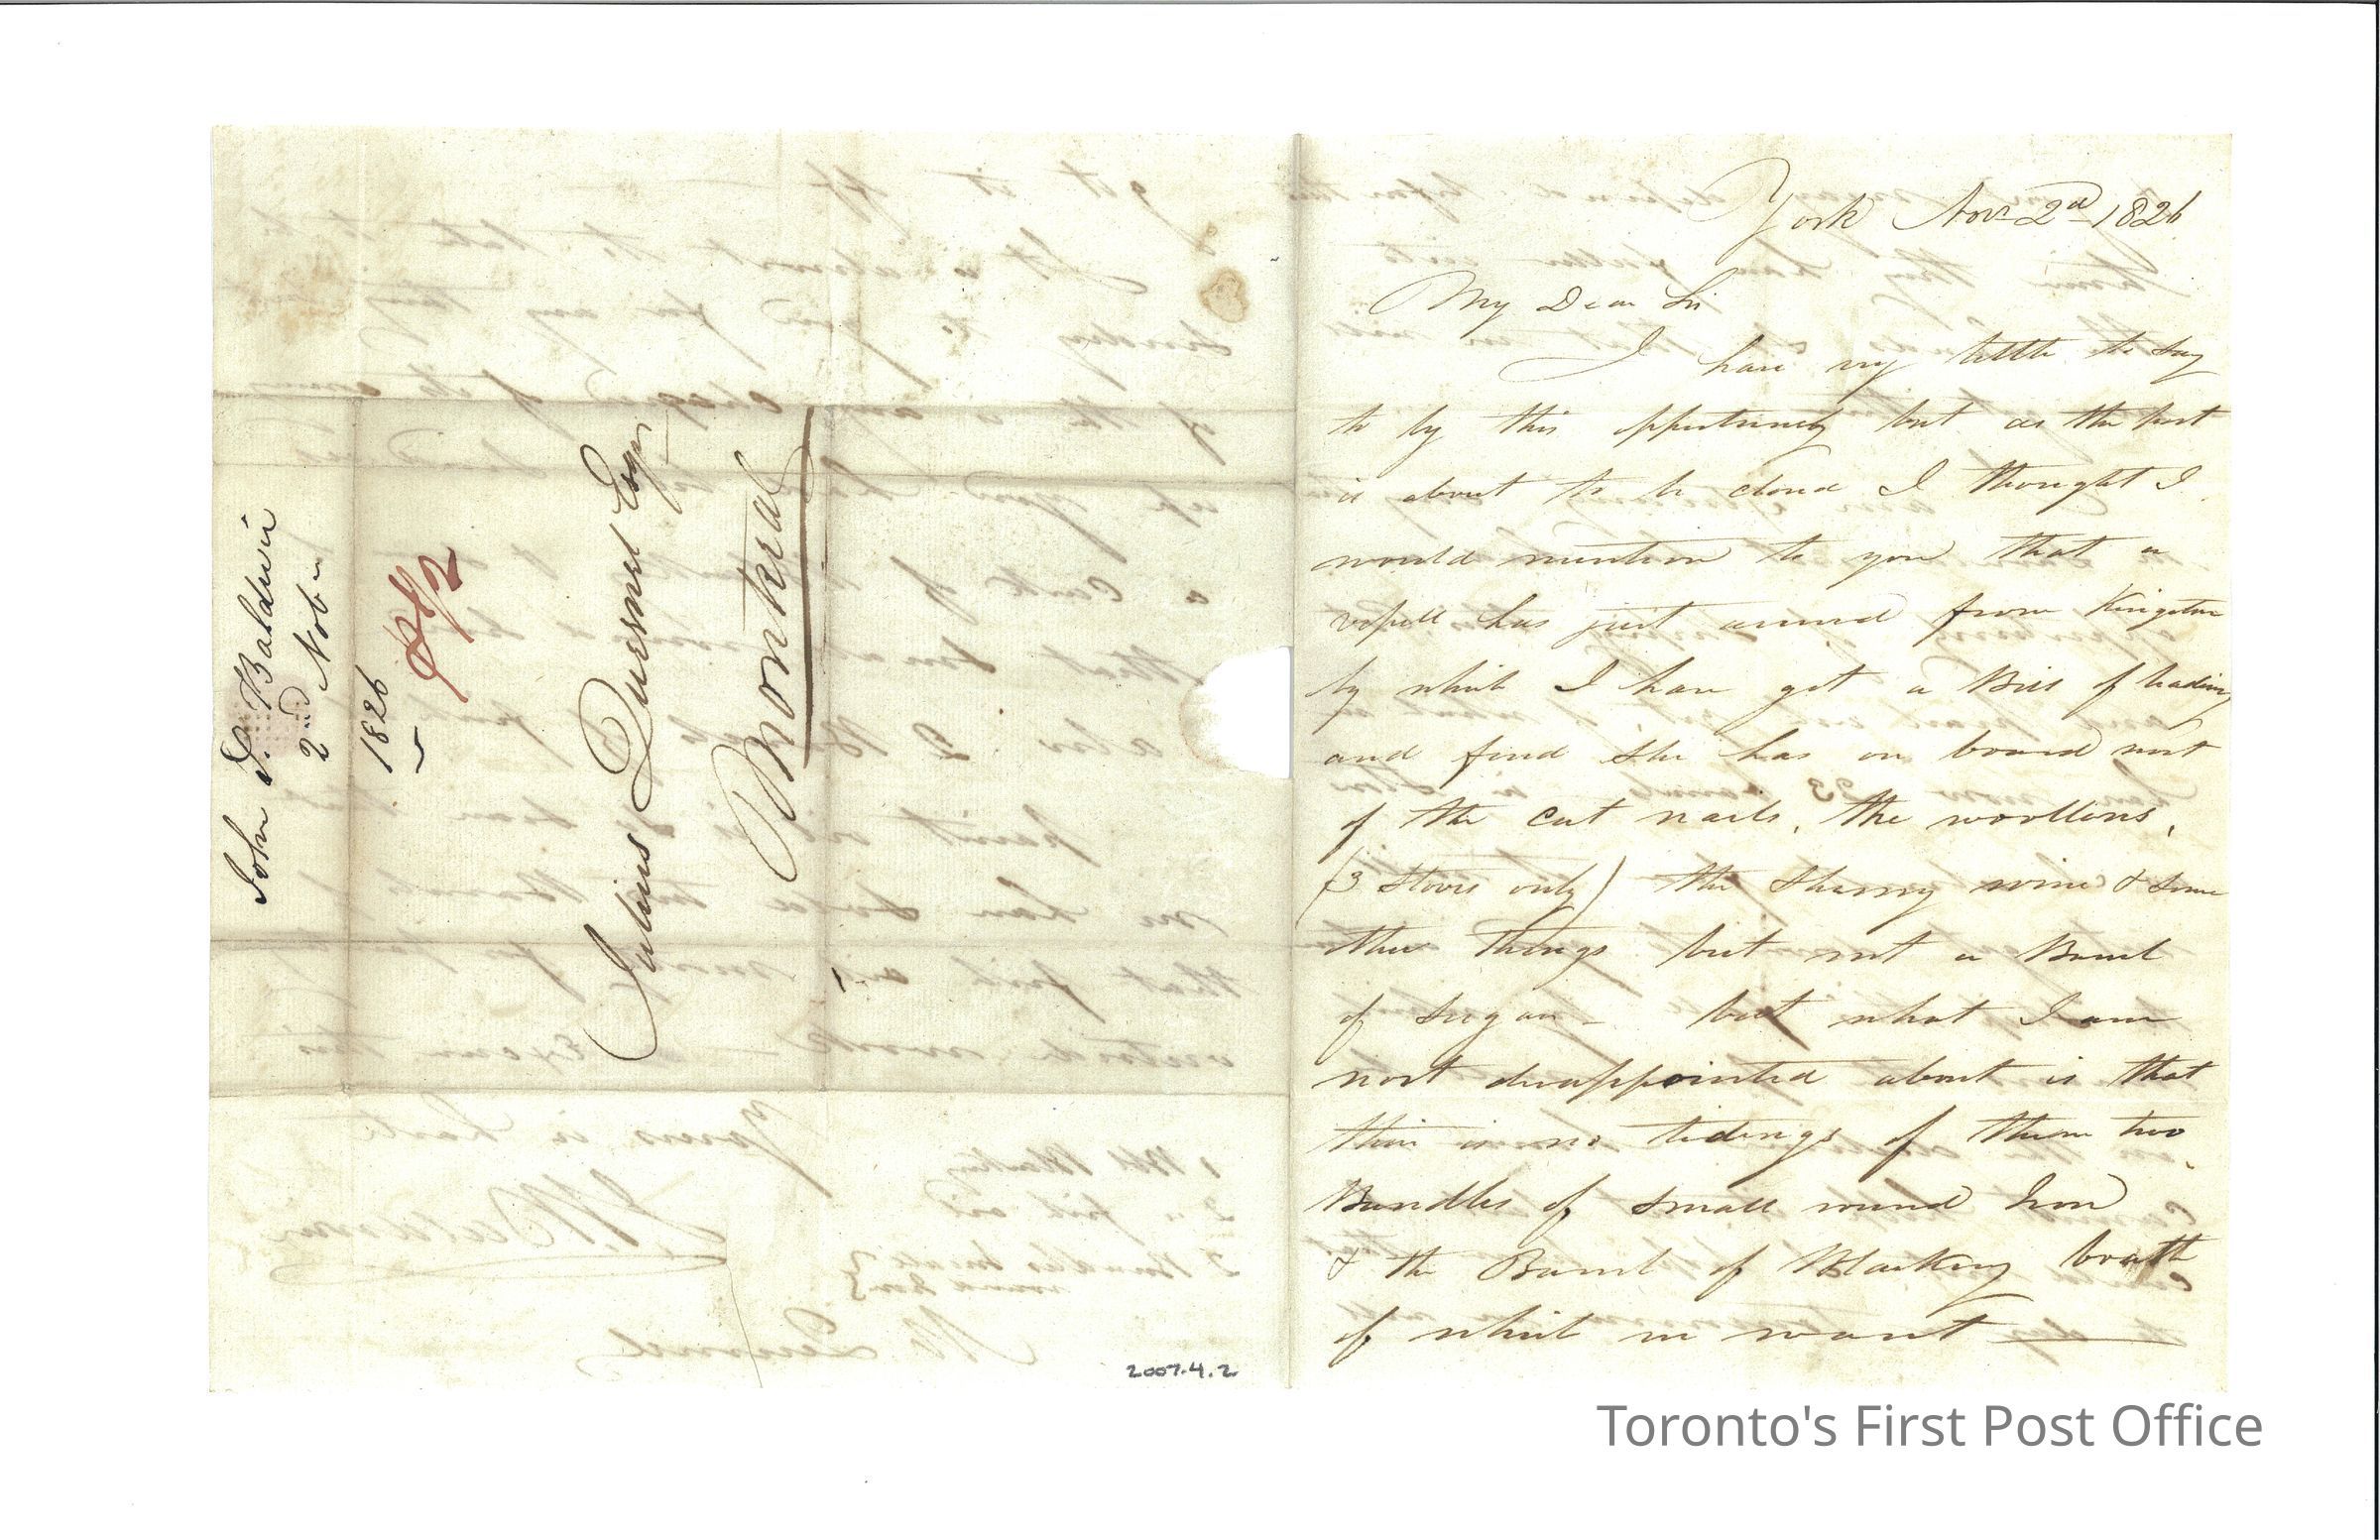 John S. Baldwin
2nd Nobr
1826
Jules Quesnel Esqr
Montreal
2007.4.2
York Novr 2d 1826
My Dear Sir
I have very little to say
to by this oppertunity but as the post
is about to be closed I thought I
would mention to you that a
vessell has just arrived from Kingston
by which I have got a Bill of Lading
and find She has on board most
of the cut nails, the woollens,
(3 Stoves only) the Sherry wine & some
other things but not a Barrel
of Sugar - but what I am
most disappointed about is that
their is no tidings of them two
Bundles of small round Iron
& the Barrel of Blacking boath
of which we want
Toronto's First Post Office